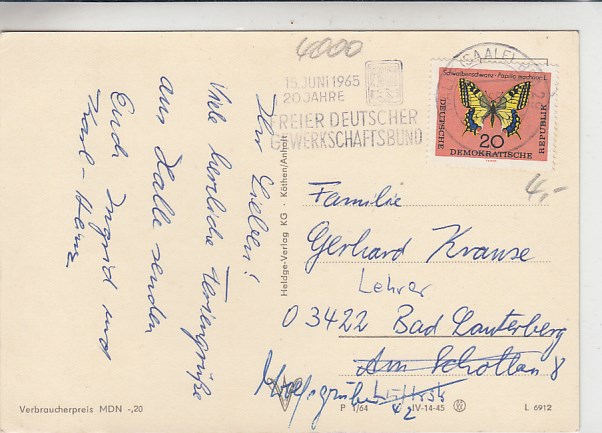 4000
15. JUNI 1965
20 JAHRE
FREIER DEUTSCHER
GEWERKSCHAFTSBUND
(SAALE)
Schwalbenschwanz · Papilio machaon L.
DEUTSCHE
20
DEMOKRATISCHE
REPUBLIK
4,-
Ihr Lieben!
Viele herzliche Feriengrüße
aus Halle senden
Euch Ingrid und
Karl-Heinz
Heldge-Verlag KG · Köthen/Anhalt
Familie
Gerhard Krause
Lehrer
03422 Bad Lauterberg
Am Scholben 8
42
Verbraucherpreis MDN -,20
P 1/64
IV-14-45
L 6912